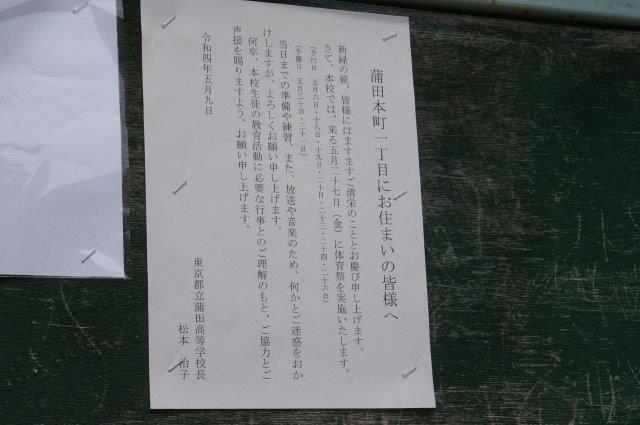 蒲田本町一丁目にお住まいの皆様へ
新緑の候、皆様にはますますご清栄のこととお慶び申し上げます。
さて、本校では、来る五月二十七日（金）に体育祭を実施いたします。
（予行日　五月六日・十八日・十九日・二十日・二十三・二十四・二十六日）
（予備日　五月三十日・三十一日）
当日までの準備や練習、また、放送や音楽のため、何かとご迷惑をおか
けしますが、よろしくお願い申し上げます。
何卒、本校生徒の教育活動に必要な行事とのご理解のもと、ご協力とご
声援を賜りますよう、お願い申し上げます。
令和四年五月九日
東京都立蒲田高等学校長
松本　治子